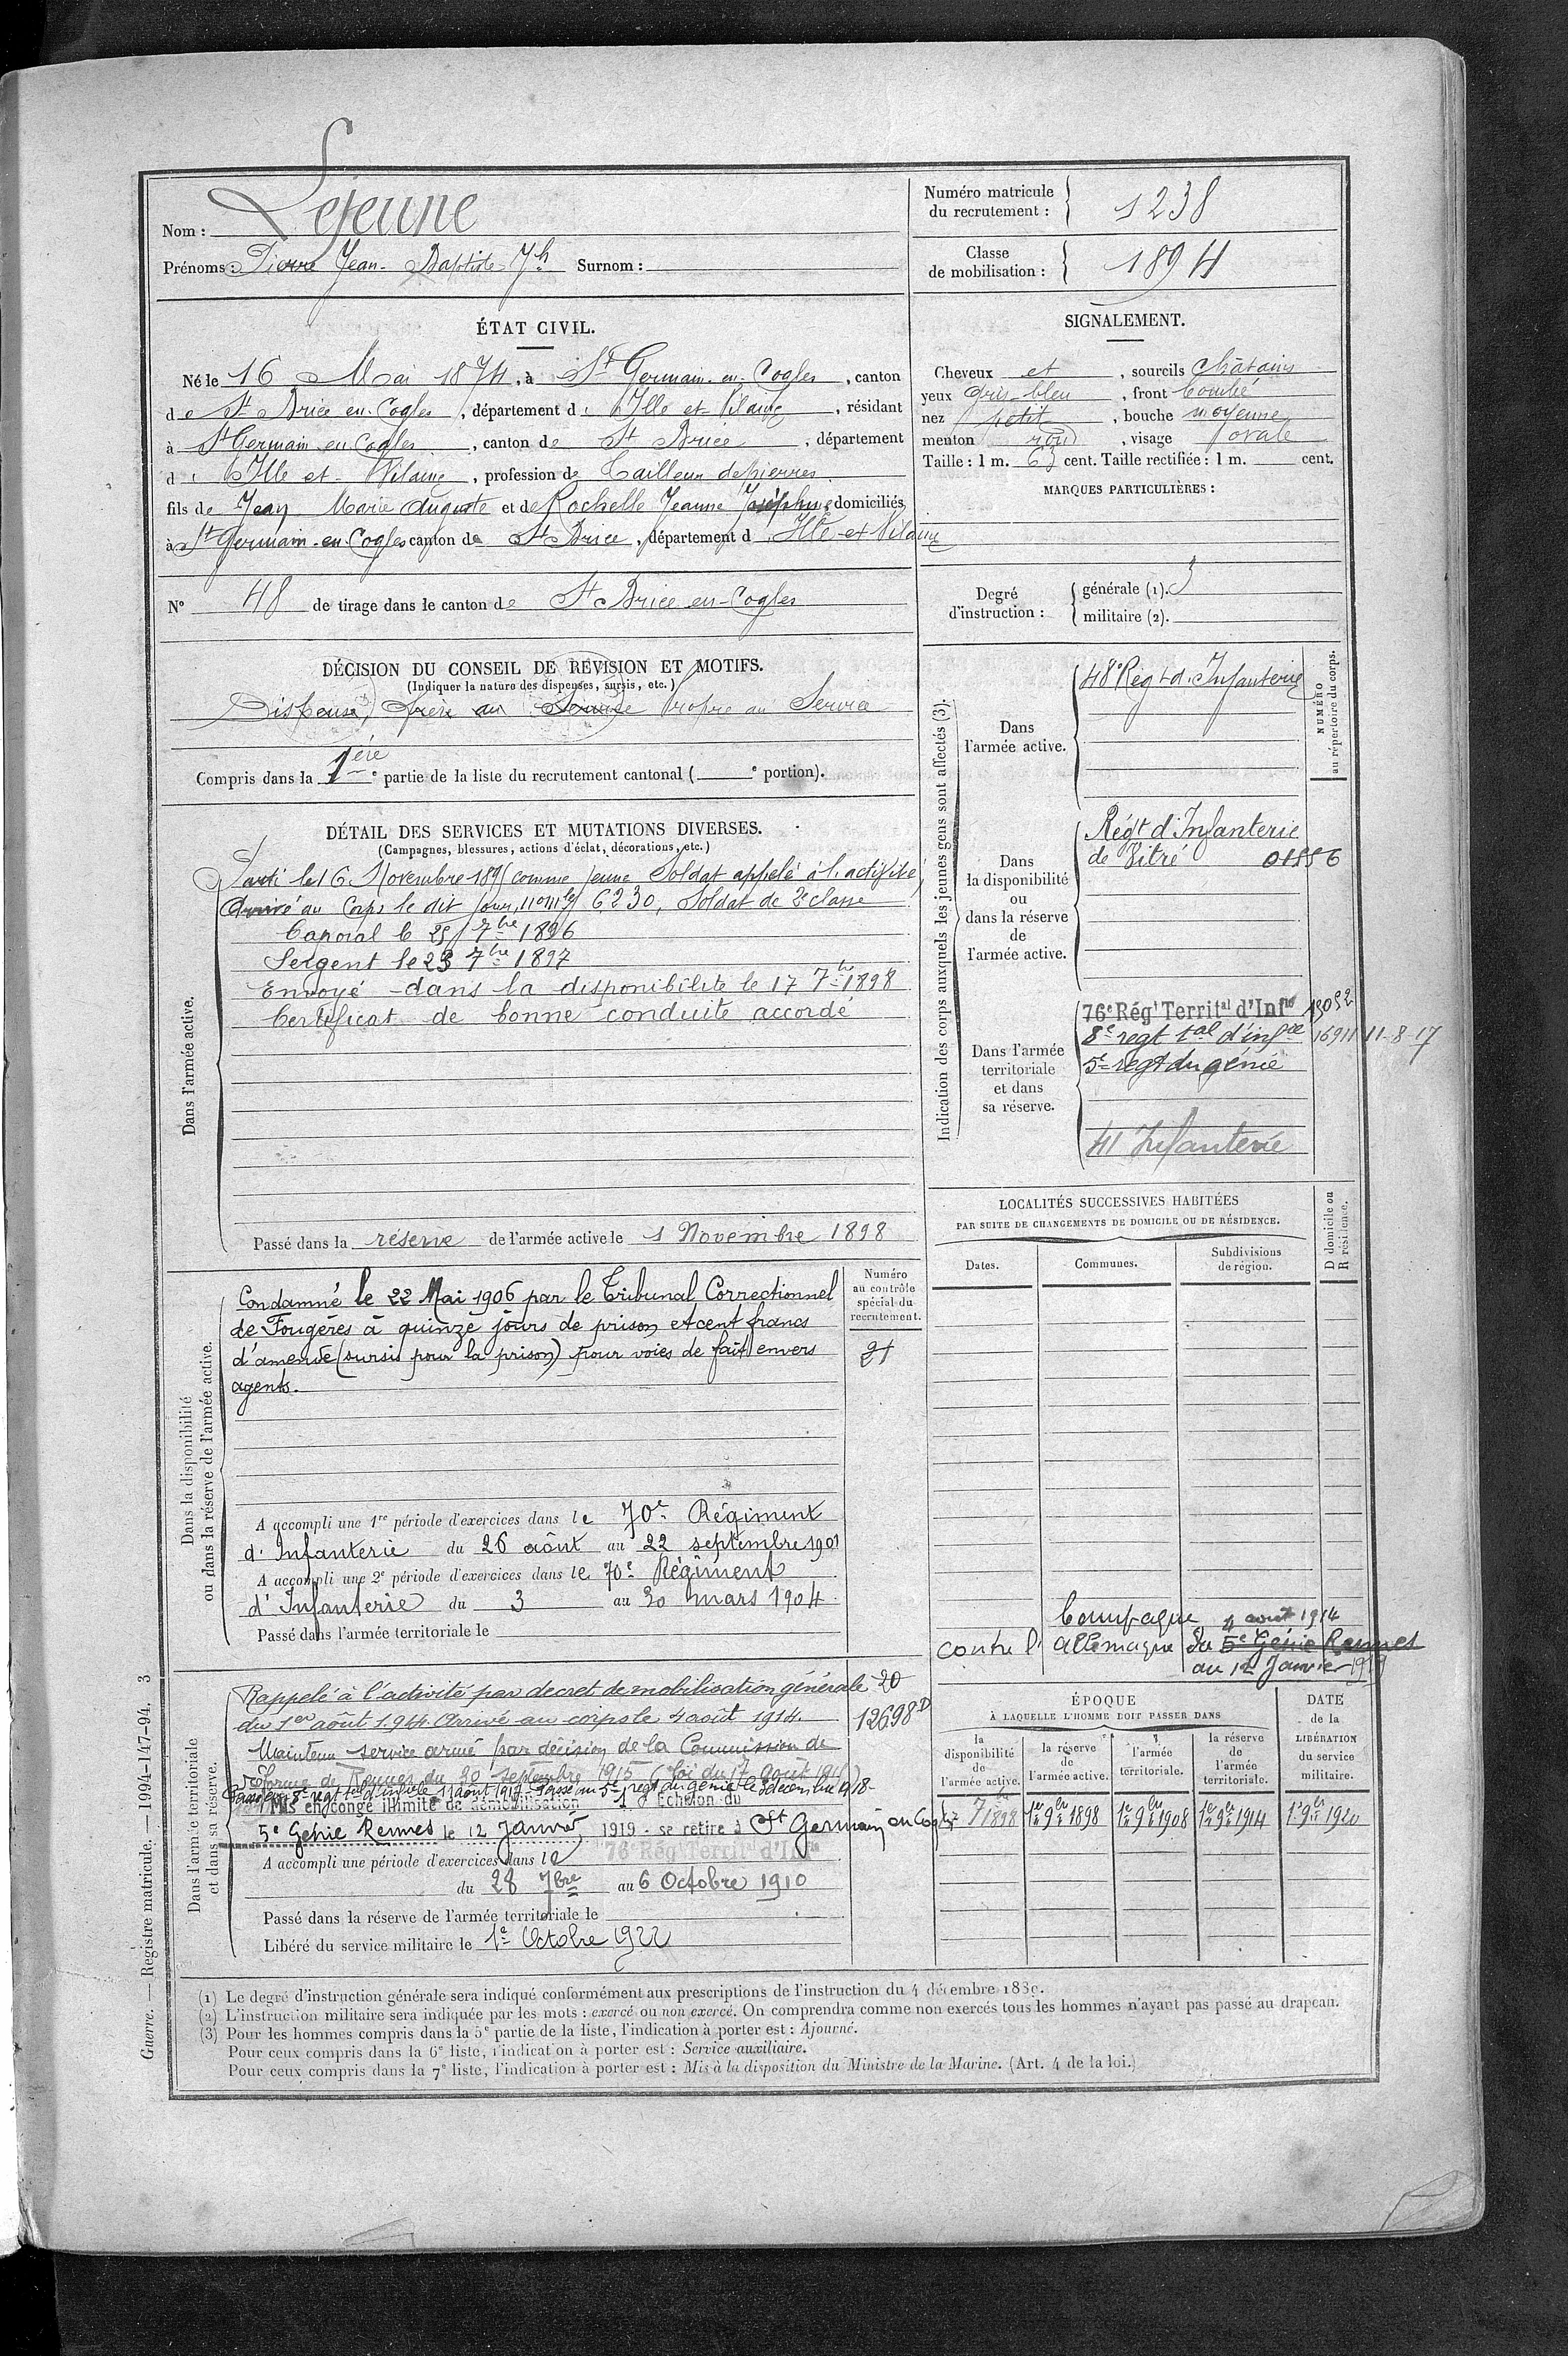 Nom : Lejeune
Prénoms : Pierre Jean-Baptiste Jh Surnom :
Numéro matricule du recrutement : 1238
Classe de mobilisation : 1894
ÉTAT CIVIL.
Né le 16 Mai 1874, à St Germain-en-Cogles, canton
de St Brice en-Cogles, département d Ille et-Vilaine, résidant
à St Germain en Cogles, canton de St Brice, département
d Ille et-Vilaine, profession de Tailleur de pierres
fils de Jean Marie Auguste et de Rochelle Jeanne Joséphine domiciliés
à St Germain-en-Cogles canton de St Brice, département d Ille-et-Vilaine
N° 48 de tirage dans le canton de St Brice en-Cogles
SIGNALEMENT.
Cheveux et, sourcils châtains
yeux gris-bleu, front bombé
nez petit, bouche moyenne
menton rond, visage ovale
Taille : 1 m. 63 cent. Taille rectifiée : 1 m. cent.
MARQUES PARTICULIÈRES :
Degré d'instruction :
générale (1). 3
militaire (2).
DÉCISION DU CONSEIL DE REVISION ET MOTIFS.
(Indiquer la nature des dispenses, sursis, etc.)
Dispensé, frère au Service Propre au Service
Compris dans la 1ère partie de la liste du recrutement cantonal ( e portion).
DÉTAIL DES SERVICES ET MUTATIONS DIVERSES.
(Campagnes, blessures, actions d'éclat, décorations, etc.)
Dans l'armée active.
Parti le 16 Novembre 1895 comme jeune Soldat appelé à l'activité,
Arrivé au Corps le dit jour, n° mle 6230, Soldat de 2e classe
Caporal le 25 7bre 1896
Sergent le 23 7bre 1897
Envoyé dans la disponibilité le 17 7bre 1898
Certificat de bonne conduite accordé
Passé dans la réserve de l'armée active le 1 Novembre 1898
Indication des corps auxquels les jeunes gens sont affectés (3).
NUMÉRO
au répertoire du corps.
Dans
l'armée active.
48e Régt d'Infanterie
Dans
la disponibilité
ou
dans la réserve
de
l'armée active.
Régt d'Infanterie
de Vitré 01886
Dans l'armée
territoriale
et dans
sa réserve.
76e Régt Territal d'Infrie
8e regt tal d'infie 16911 11-8-17
5e regt du génie
41 Infanterie
LOCALITÉS SUCCESSIVES HABITÉES
PAR SUITE DE CHANGEMENTS DE DOMICILE OU DE RÉSIDENCE.
Dates.
Communes.
Subdivisions
de région.
D domicile ou
R résidence.
Campagne 4 août 1914
contre l'allemagne du 5e Génie Rennes
au 12 Janvier 1919
Dans la disponibilité
ou dans la réserve de l'armée active.
Numéro
au contrôle
spécial du
recrutement.
21
Condamné le 22 Mai 1906 par le Tribunal Correctionnel
de Fougères à quinze jours de prison et cent francs
d'amende (sursis pour la prison) pour voies de fait envers
agents.
A accompli une 1re période d'exercices dans le 70e Régiment
d'Infanterie du 26 août au 22 septembre 1901
A accompli une 2e période d'exercices dans le 70e Régiment
d'Infanterie du 3 au 30 mars 1904
Passé dans l'armée territoriale le
Dans l'armée territoriale
et dans sa réserve.
Rappelé à l'activité par decret de mobilisation générale 20
du 1er août 1914. Arrivé au corps le 4 août 1914. 12698
Maintenu service armé par décision de la Commission de
réforme de Rennes du 20 septembre 1915 (Loi du 17 août 1915)
Passé au 8e regt tal d'infie le 11 août 1917 - Passé au 5e regt du génie le 3 décembre 1918-
Mis en congé illimité de démobilisation Echelon du
5e Génie Rennes le 12 Janvier 1919 - se retire à St Germain en Cogles
A accompli une période d'exercices dans le 76e Rég Territal d'Infrie
du 28 7bre au 6 Octobre 1910
Passé dans la réserve de l'armée territoriale le
Libéré du service militaire le 1er Octobre 1922
ÉPOQUE
À LAQUELLE L'HOMME DOIT PASSER DANS
la
disponibilité
de
l'armée active.
la réserve
de
l'armée active.
l'armée
territoriale.
la réserve
de
l'armée
territoriale.
DATE
de la
LIBÉRATION
du service
militaire.
17 7bre 1898
1er 9bre 1898
1er 9bre 1908
1er 9bre 1914
1er 9bre 1920
(1) Le degré d'instruction générale sera indiqué conformément aux prescriptions de l'instruction du 4 décembre 1889.
(2) L'instruction militaire sera indiquée par les mots : exercé ou non exercé. On comprendra comme non exercés tous les hommes n'ayant pas passé au drapeau.
(3) Pour les hommes compris dans la 5e partie de la liste, l'indication à porter est : Ajourné.
Pour ceux compris dans la 6e liste, l'indication à porter est : Service auxiliaire.
Pour ceux compris dans la 7e liste, l'indication à porter est : Mis à la disposition du Ministre de la Marine. (Art. 4 de la loi.)
Guerre. — Registre matricule. — 1994-147-94. 3